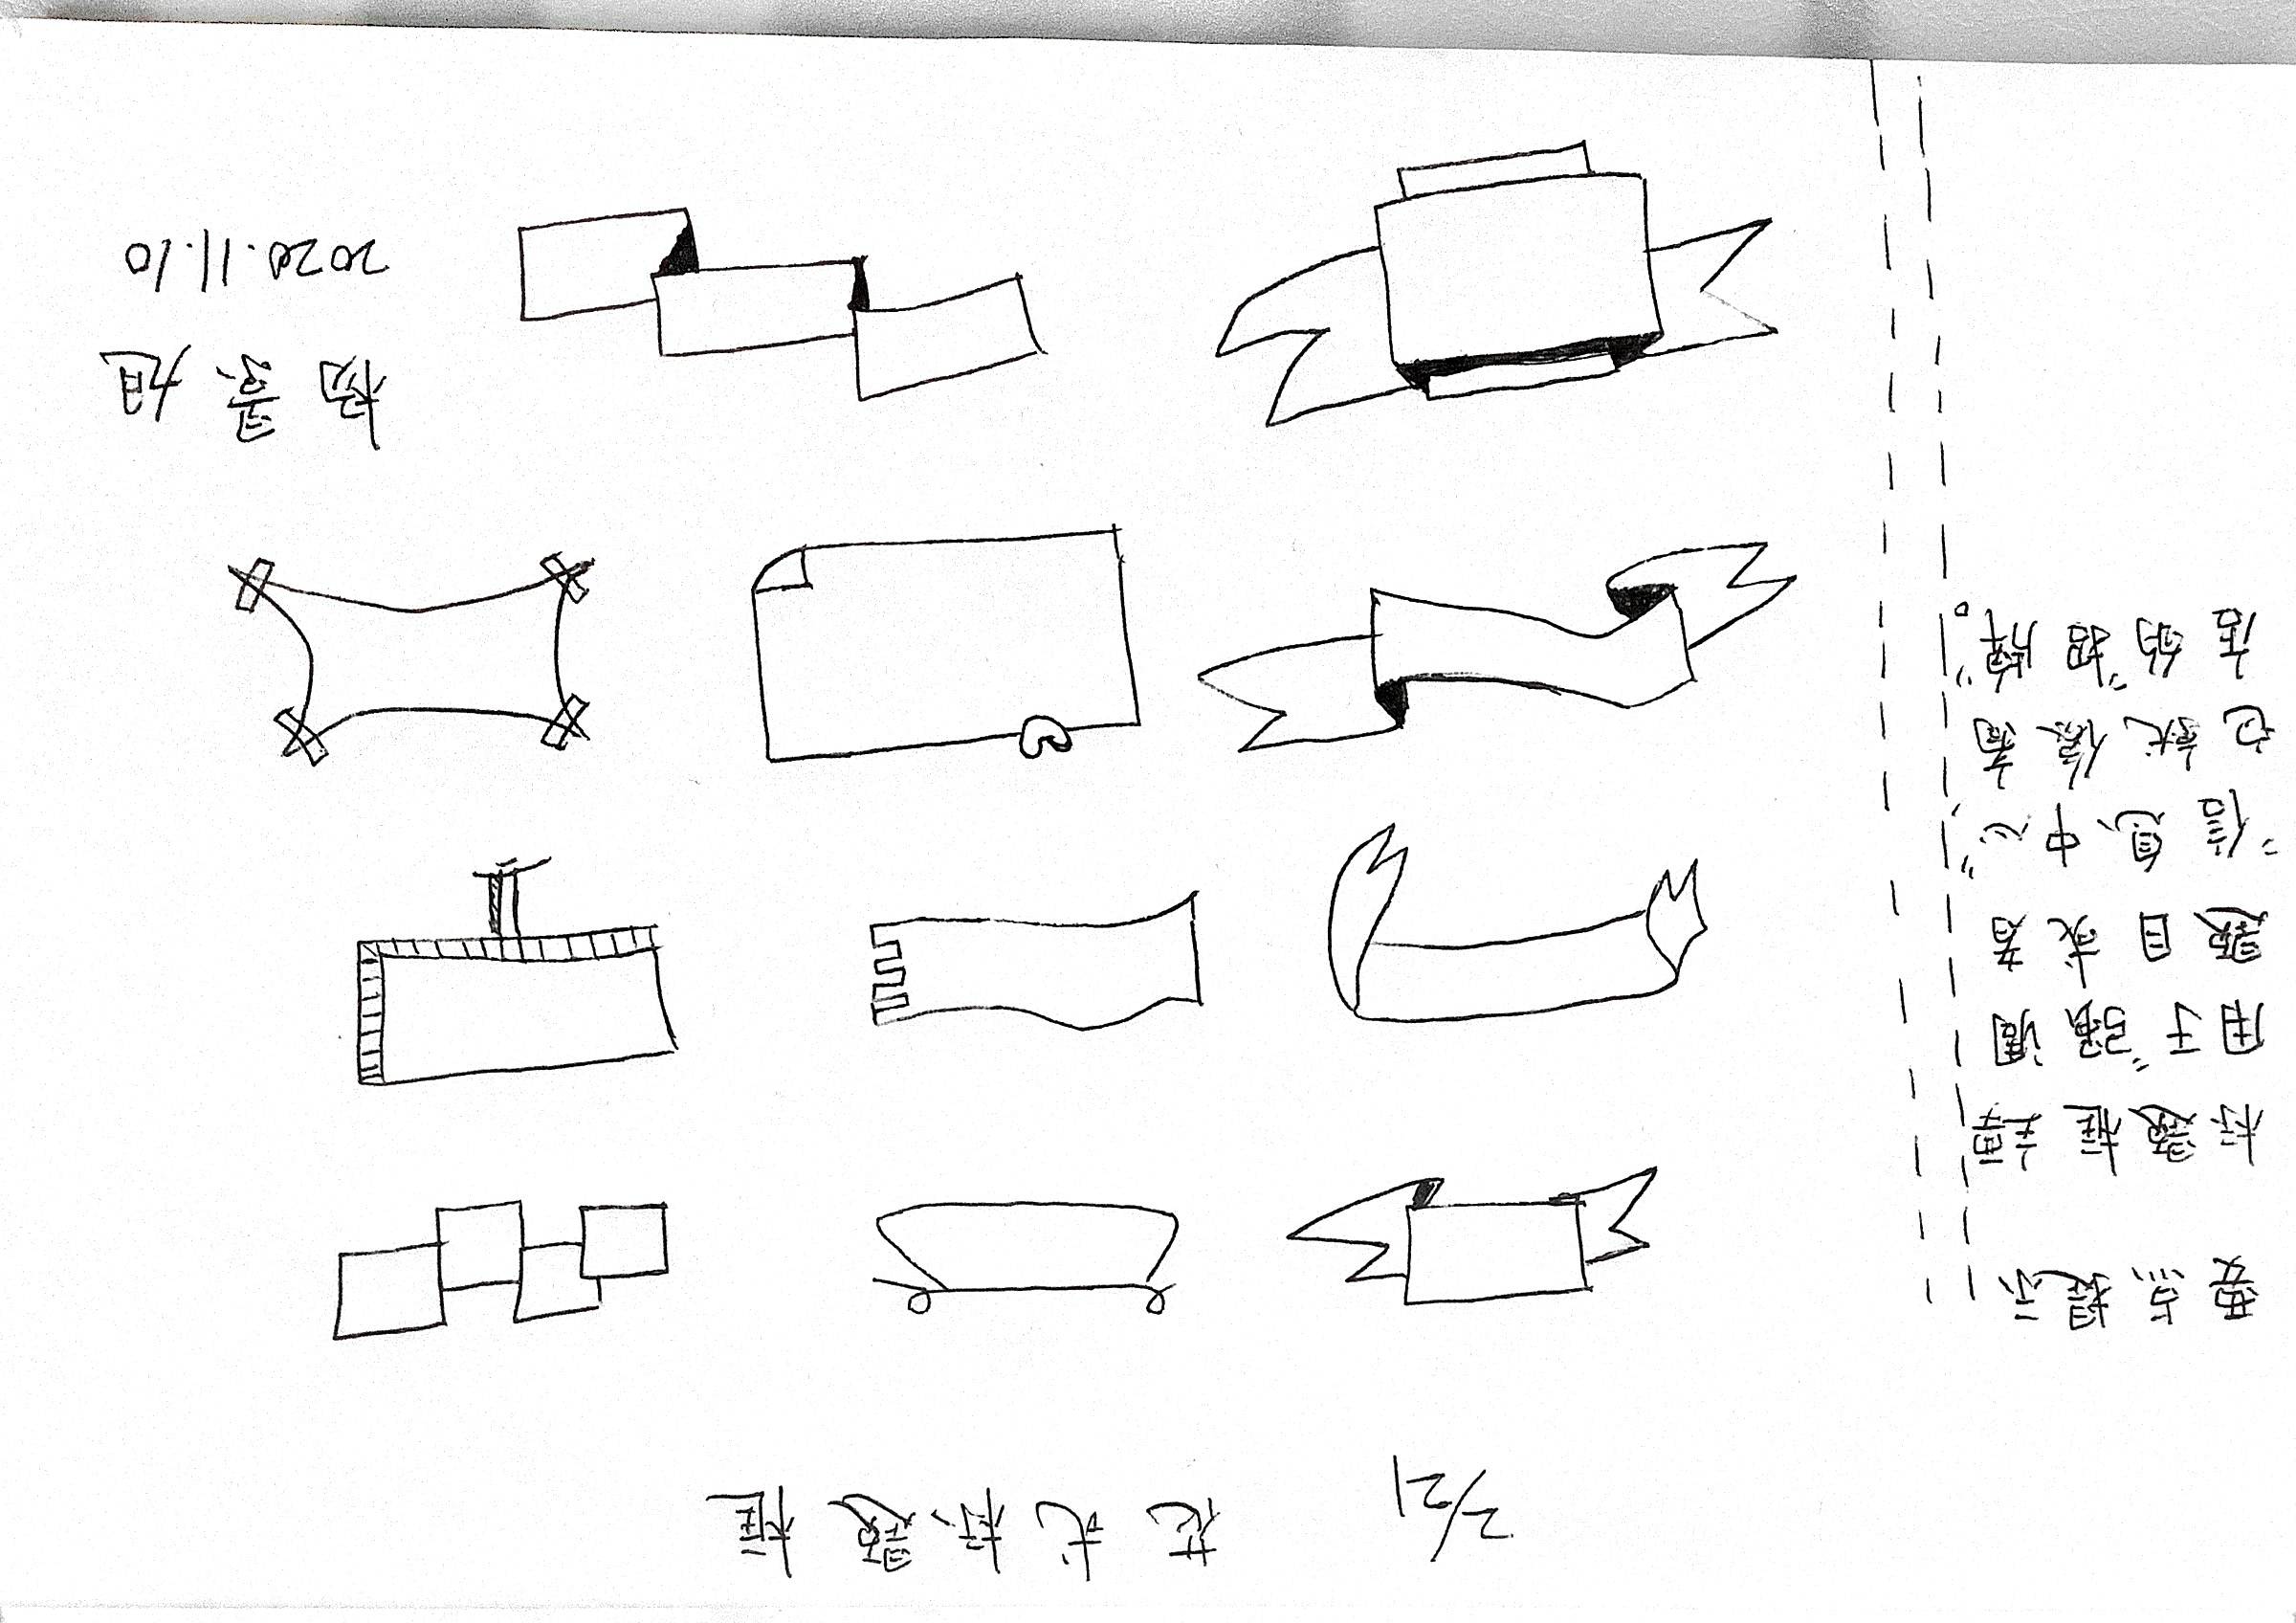 2/21 花式标题框
要点提示
标题框主要
用于“强调
题目或者
“信息中心”,
它就像商
店的“招牌”。
杨景旭
2020.11.10